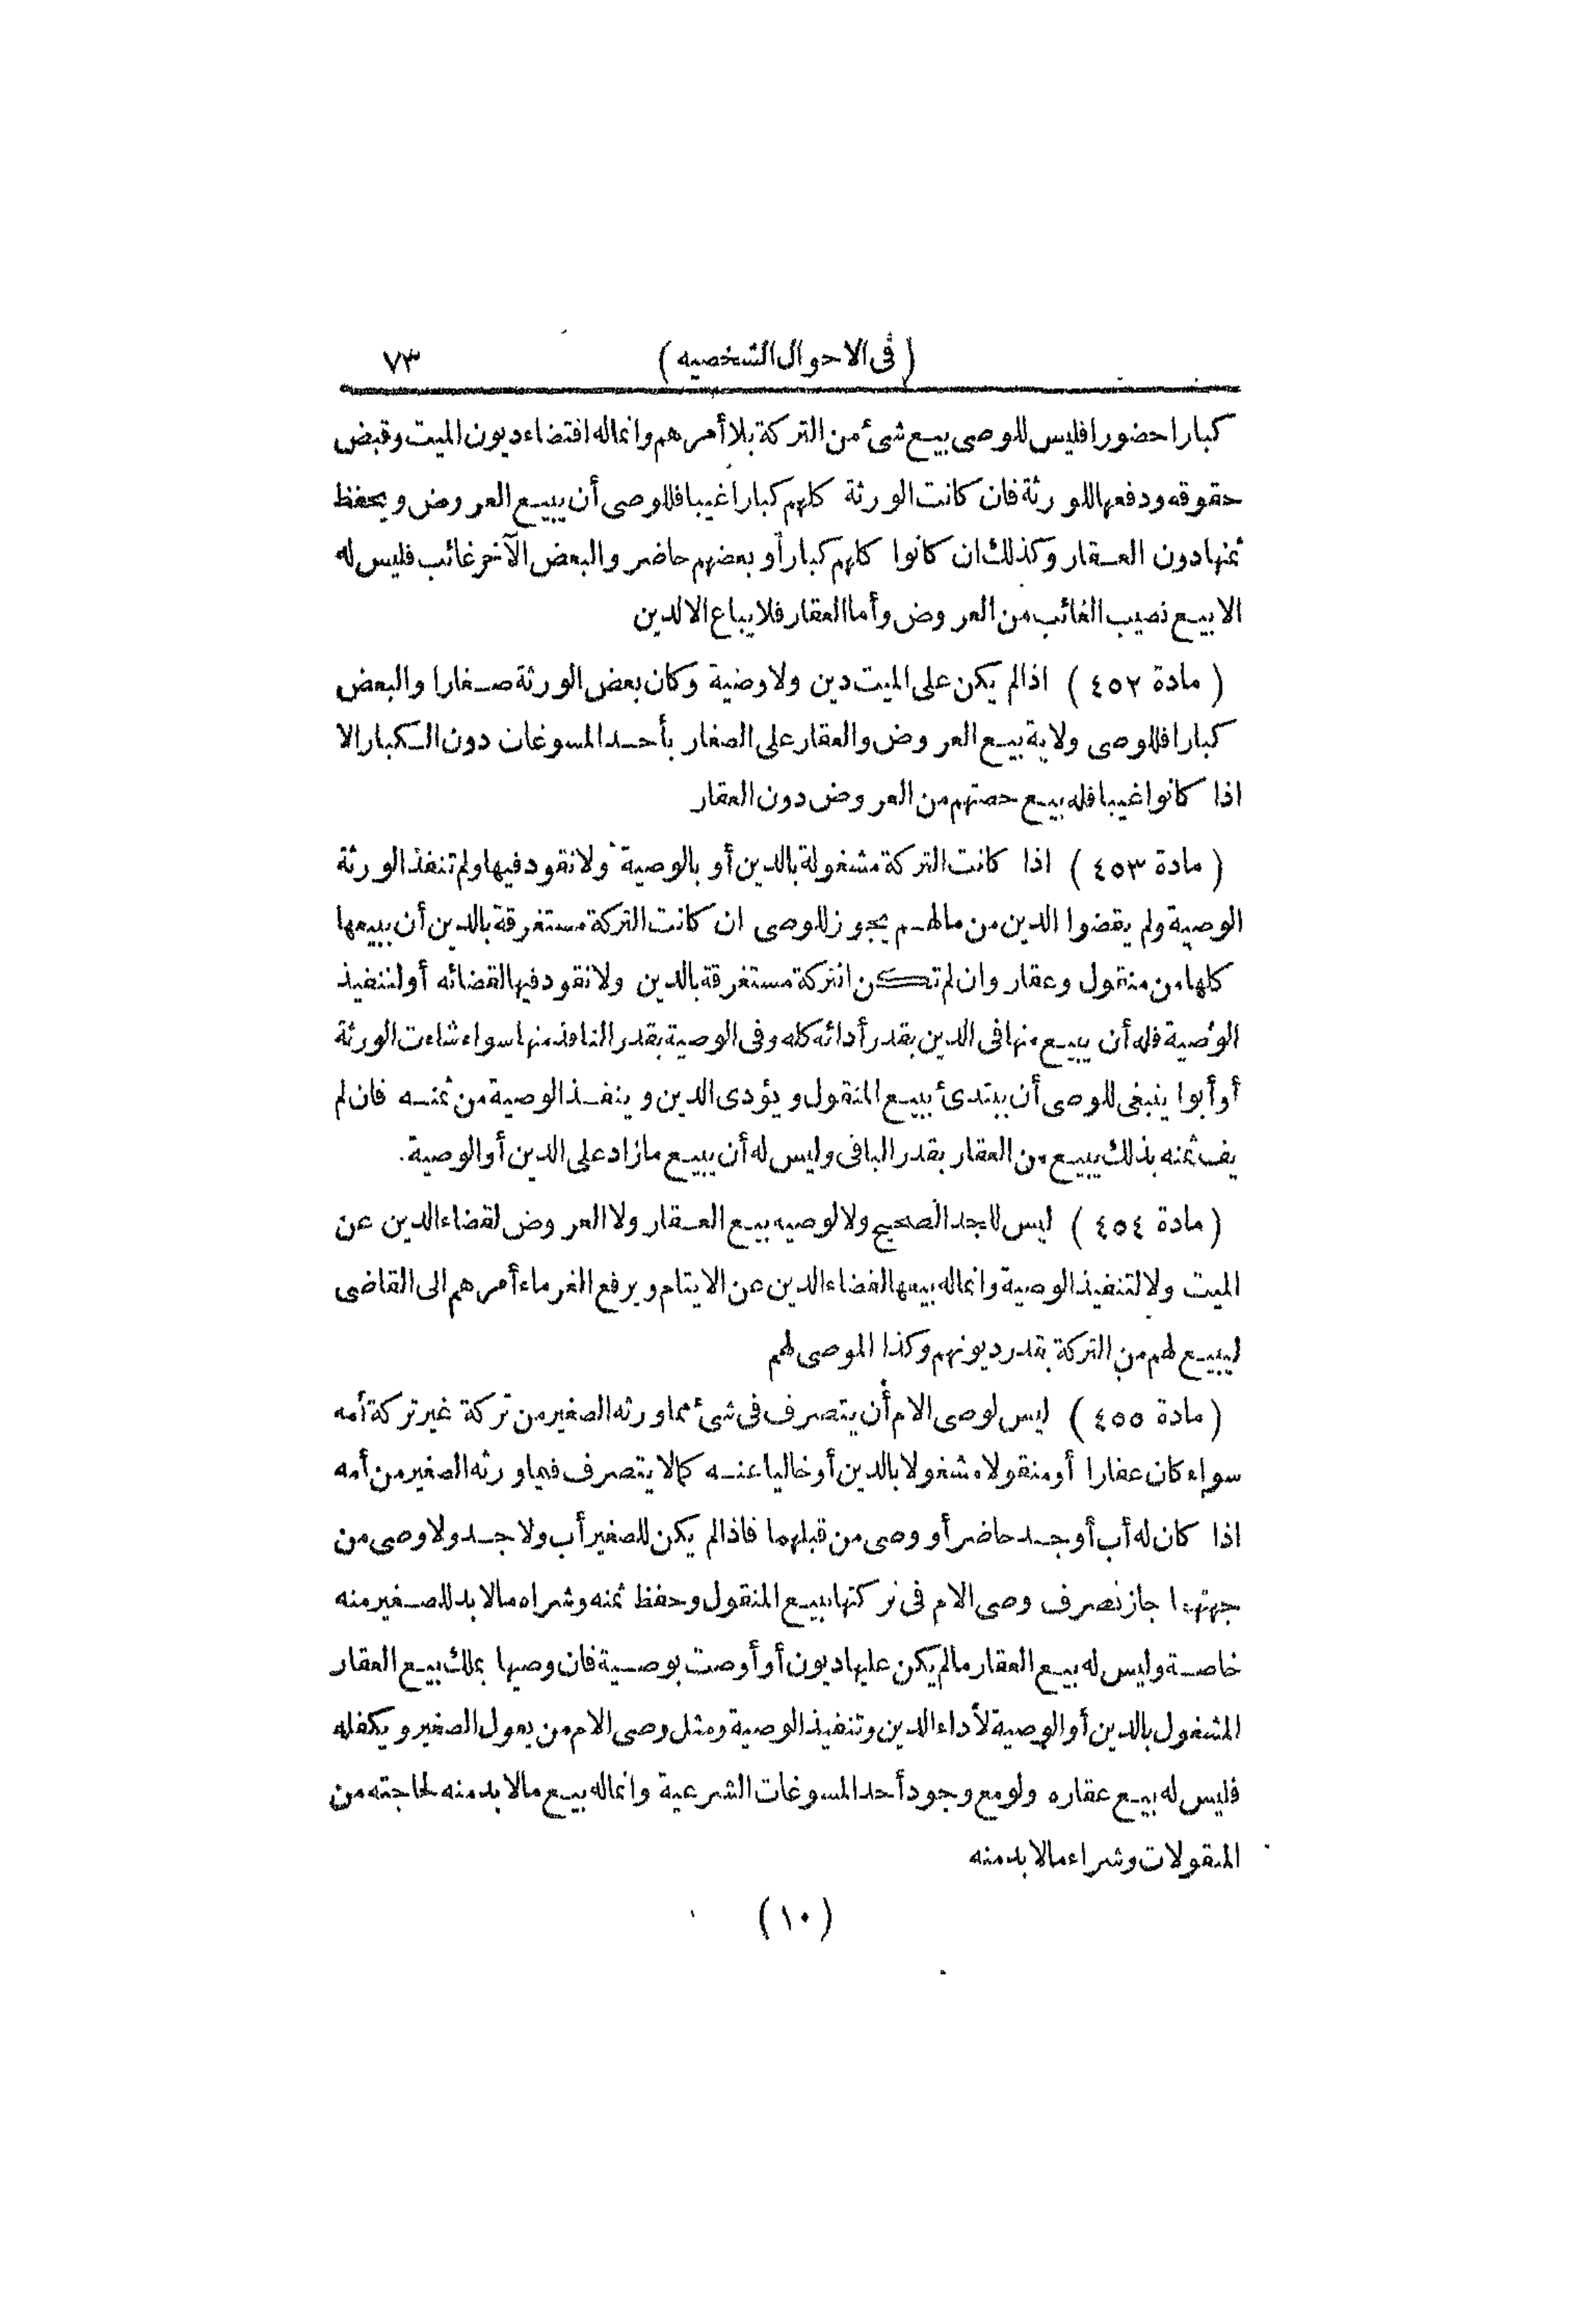 (فى الاحوال الشخصيه) ٧٣
كبارا حضورا فليس للوصى بيع شئ من التركة بلا أمرهم وانماله اقتضاء ديون الميت وقبض
حقوقه ودفعها للورثة فان كانت الورثة كلهم كبارا غيبا فللوصى أن يبيع العروض ويحفظ
ثمنها دون العقار وكذلك ان كانوا كلهم كبارا أو بعضهم حاضر والبعض الآخر غائب فليس له
الا بيع نصيب الغائب من العروض وأما العقار فلا يباع الا لدين
(مادة ٤٥٢) اذا لم يكن على الميت دين ولا وصية وكان بعض الورثة صغارا والبعض
كبارا فللوصى ولاية بيع العروض والعقار على الصغار بأحد المسوغات دون الكبار الا
اذا كانوا غيبا فله بيع حصتهم من العروض دون العقار
(مادة ٤٥٣) اذا كانت التركة مشغولة بالدين أو بالوصية ولا نقود فيها ولم تنفذ الورثة
الوصية ولم يقضوا الدين من مالهم يجوز للوصى ان كانت التركة مستغرقة بالدين أن يبيعها
كلها من منقول وعقار وان لم تكن التركة مستغرقة بالدين ولا نقود فيها لقضائه أو لتنفيذ
الوصية فله أن يبيع منها فى الدين بقدر أدائه كله وفى الوصية بقدر النافذ منها سواء شاءت الورثة
أو أبوا ينبغى للوصى أن يبتدئ ببيع المنقول ويؤدى الدين وينفذ الوصية من ثمنه فان لم
يف ثمنه بذلك يبيع من العقار بقدر الباقى وليس له أن يبيع ما زاد على الدين أو الوصية.
(مادة ٤٥٤) ليس للجد الصحيح ولا لوصيه بيع العقار ولا العروض لقضاء الدين عن
الميت ولا لتنفيذ الوصية وانماله بيعها لقضاء الدين عن الايتام ويرفع الغرماء أمرهم الى القاضى
ليبيع لهم من التركة بقدر ديونهم وكذا الموصى لهم
(مادة ٤٥٥) ليس لوصى الام أن يتصرف فى شئ مما ورثه الصغير من تركة غير تركة أمه
سواء كان عقارا أو منقولا مشغولا بالدين أو خاليا عنه كما لا يتصرف فيما ورثه الصغير من أمه
اذا كان له أب أو جد حاضر أو وصى من قبلهما فاذا لم يكن للصغير أب ولا جد ولا وصى من
جهتهما جاز تصرف وصى الام فى تركتها ببيع المنقول وحفظ ثمنه وشراء ما لا بد للصغير منه
خاصة وليس له بيع العقار ما لم يكن عليها ديون أو أوصت بوصية فان وصيها يملك بيع العقار
المشغول بالدين أو الوصية لأداء الدين وتنفيذ الوصية ومثل وصى الام من يعول الصغير ويكفله
فليس له بيع عقاره ولو مع وجود أحد المسوغات الشرعية وانماله بيع ما لا بد منه لحاجته من
المنقولات وشراء ما لا بد منه
(١٠)